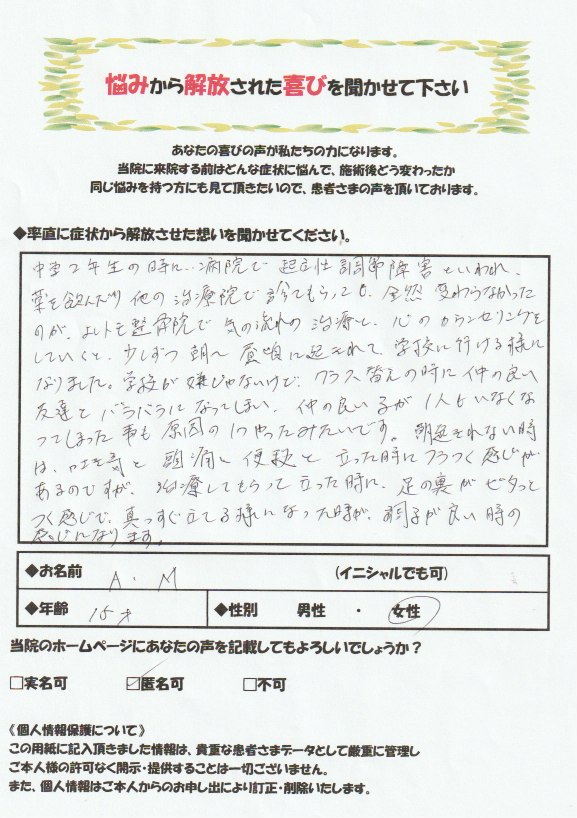 悩みから解放された喜びを聞かせて下さい
あなたの喜びの声が私たちの力になります。
当院に来院する前はどんな症状に悩んで、施術後どう変わったか
同じ悩みを持つ方にも見て頂きたいので、患者さまの声を頂いております。
◆率直に症状から解放させた想いを聞かせてください。
中学2年生の時に、病院で 起立性調節障害といわれ、
薬を飲んだり他の治療院で診てもらっても、全然変わらなかった
のが、よしトモ整骨院で気の流れの治療と、心のカウンセリングを
していくと、少しずつ朝〜昼頃に起きれて、学校に行ける様に
なりました。学校が嫌じゃないけど、クラス替えの時に仲の良い
友達とバラバラになってしまい、仲の良い子が1人もいなくな
ってしまった事も原因の1つやったみたいです。朝起きれない時
は、吐き気と頭痛と便秘と立った時にフラつく感じが
あるのですが、治療してもらって立った時に、足の裏がピタッと
つく感じで、真っすぐ立てる様になった時が、調子が良い時の
感じになります。
◆お名前 A.M (イニシャルでも可)
◆年齢 15才 ◆性別 男性 ・ 女性
当院のホームページにあなたの声を記載してもよろしいでしょうか？
□実名可 ☑匿名可 □不可
《個人情報保護について》
この用紙に記入頂きました情報は、貴重な患者さまデータとして厳重に管理し
ご本人様の許可なく開示・提供することは一切ございません。
また、個人情報はご本人からのお申し出により訂正・削除いたします。